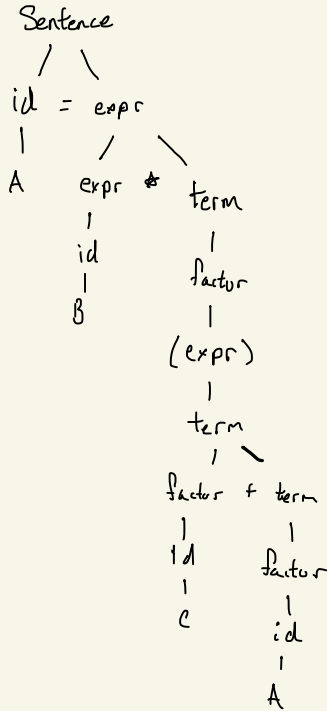 Sentence
id = expr
A expr * term
id factor
B (expr)
term
factor + term
id factor
C id
A